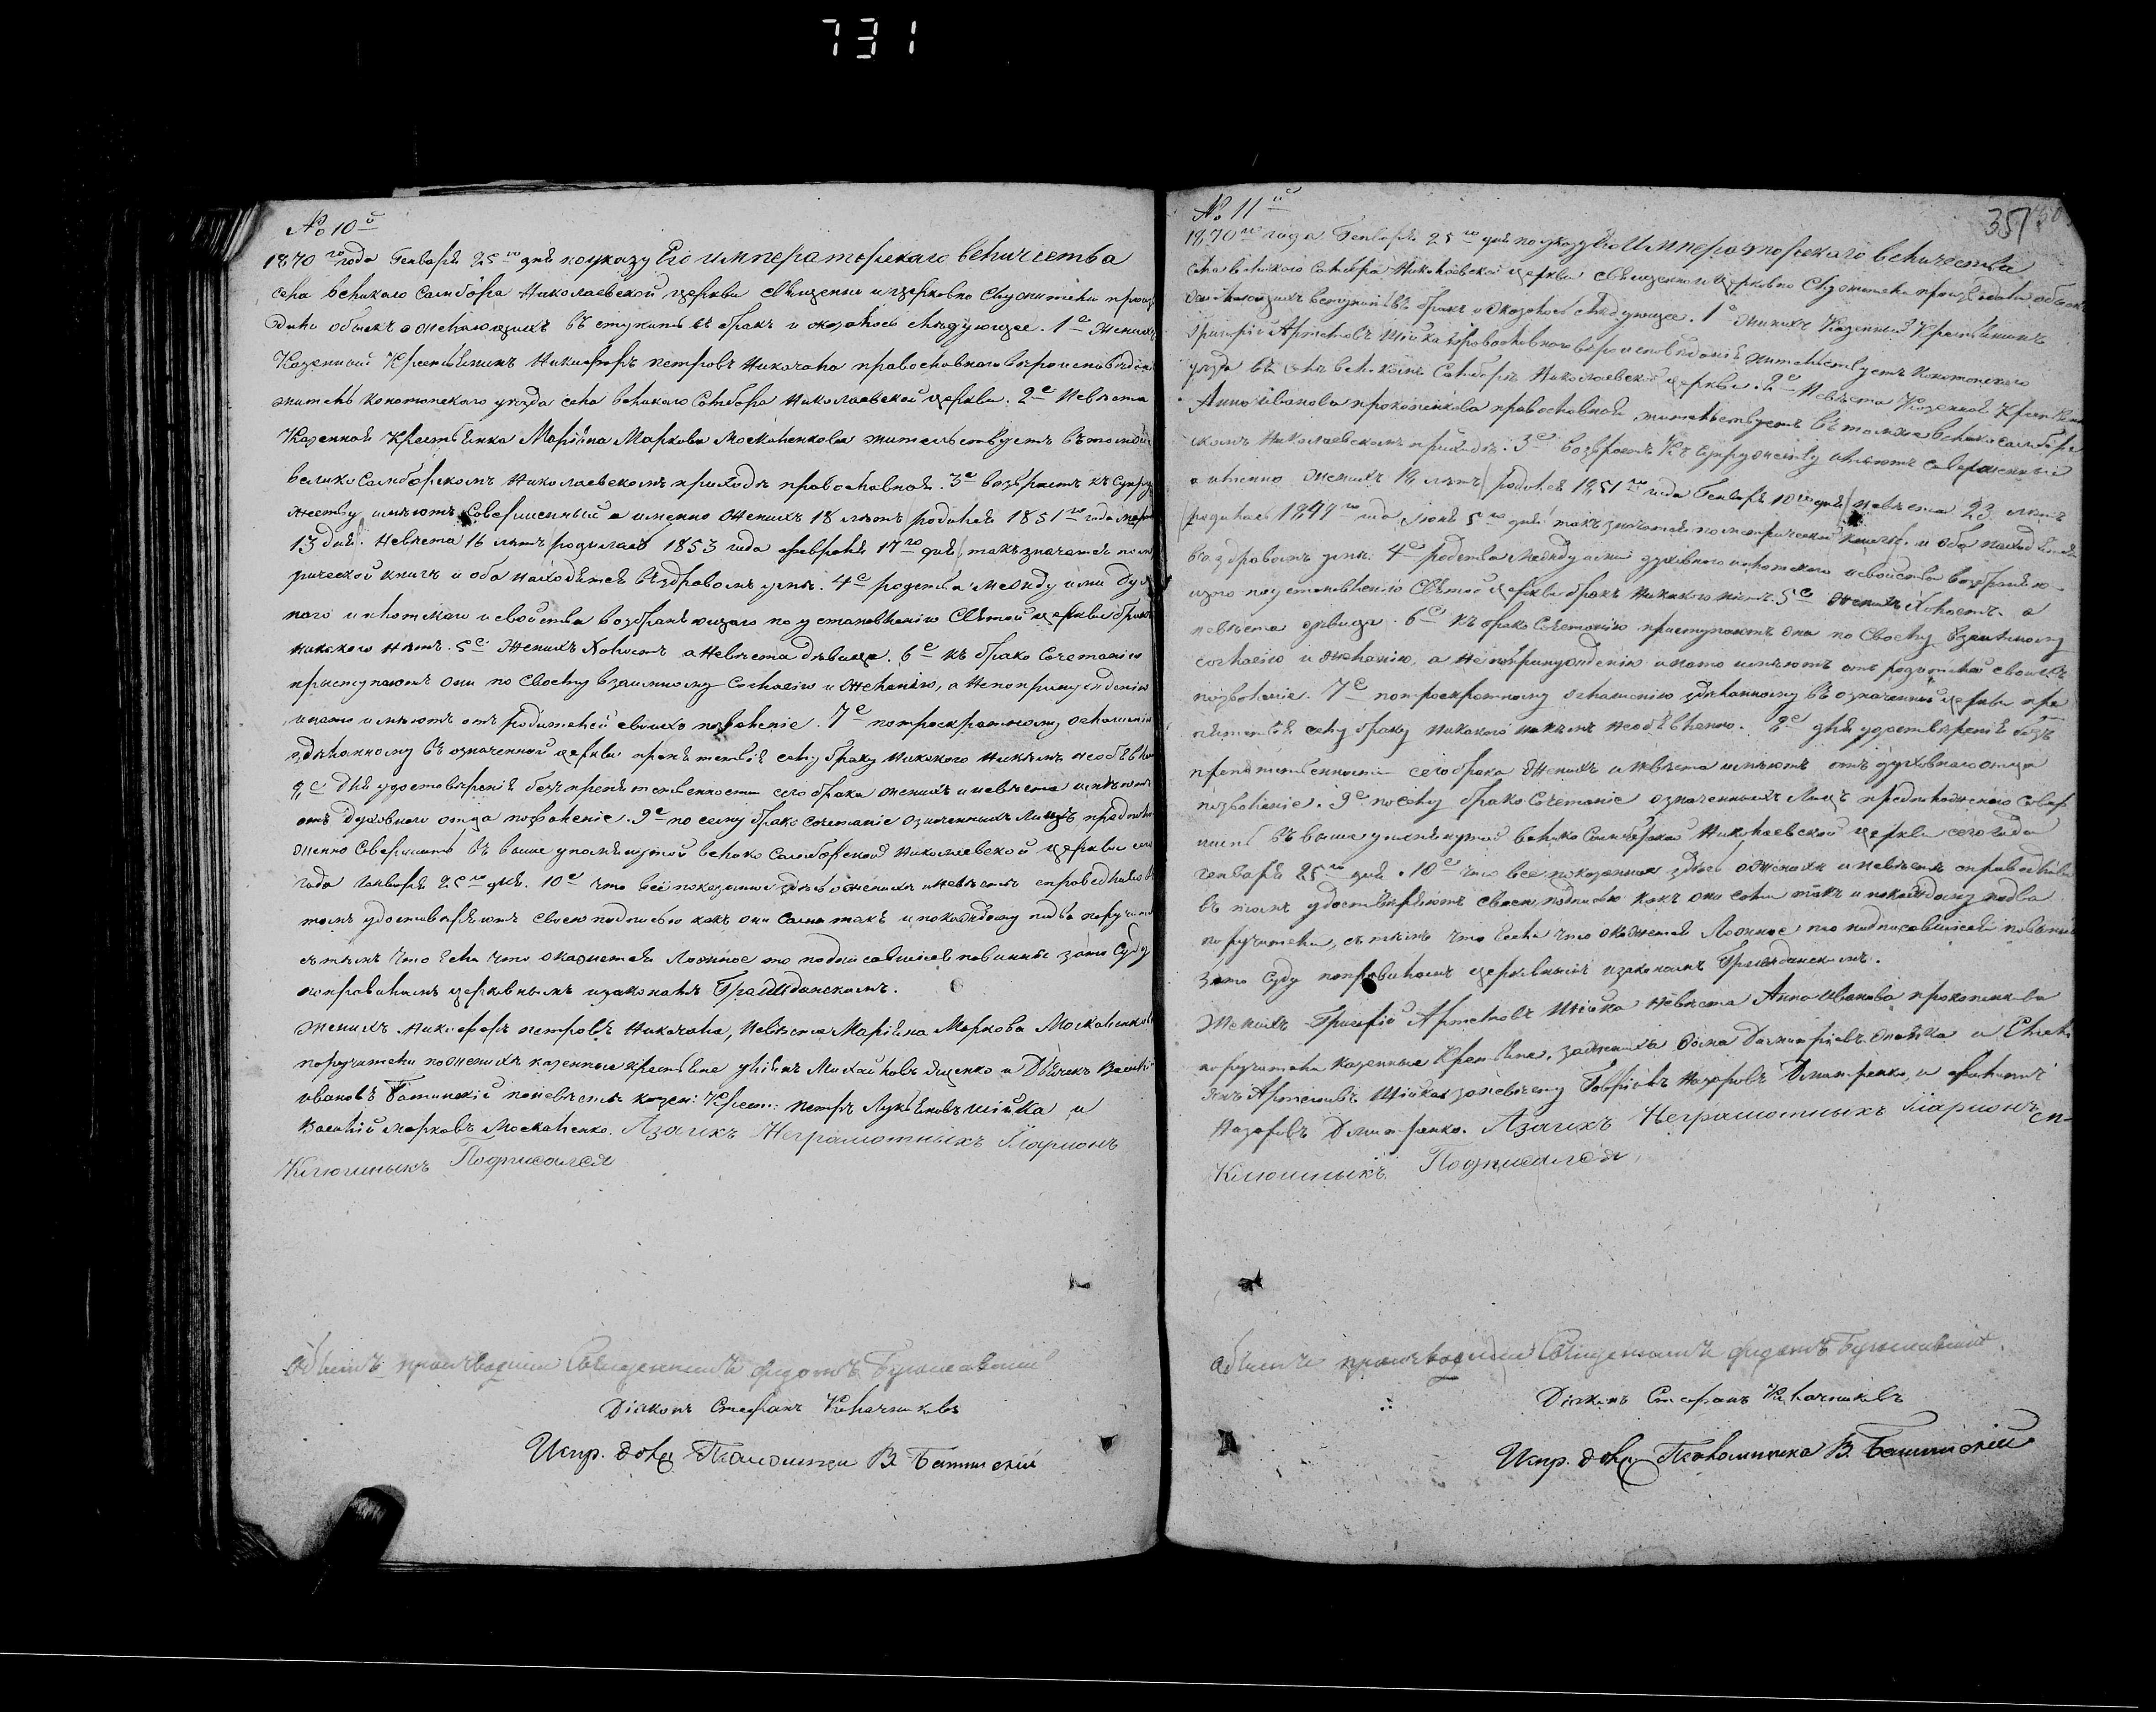 731
№ 10й
1870го года Генваря 25го дня по указу Его императорскаго величества
села великаго Самбора Николаевской церкви священно и церковно служители произ
дили обыскъ о желающихъ вступить въ бракъ и оказалось слѣдующее. 1е Женихъ
Казенный Крестьянинъ Никифоръ петровъ православнаго вѣроисповѣдан
житель конотопскаго уѣзда села великаго Самбора Николаевской церкви. 2е Невѣста
Казенная Крестьянка Маркова Москаленкова жительствуетъ въ томъ
велико Самборскомъ Николаевскомъ приходѣ православная. 3е возврастъ къ супру
жеству имѣютъ совершенный а именно женихъ 18 лѣтъ родился 1851го года
13 дня. Невѣста 16 лѣтъ родилась 1853 года февраля 17го дня такъ значатся по мет
рической книгѣ и оба находятся въ здравомъ умѣ. 4е родства между ими дух
наго и плотскаго и свойства возбраняющаго по установленію Святой церкви бракъ
никакого нѣтъ. 5е Женихъ Холостъ а Невѣста дѣвица. 6е къ брако Сочетанію
приступаютъ они по Своему взаимному Согласію и Желанію, а Не по принужденію
и на то имѣютъ отъ родителей своихъ позволеніе. 7е по троекратному оглашенію
здѣланному въ означенной церкви препятствія сему браку никакого никѣмъ необъявле
8е для удостовѣренія безъ препятственности сего брака женихъ и невѣста имѣютъ
отъ духовнаго отца позволеніе. 9е по сему брако сочетаніе означенныхъ лицъ предполо
жено Совершить въ выше упомянутой велико Самборской Николаевской церкви сего
года Генваря 25го дня. 10е что всё показанное здѣсь о женихѣ и невѣстѣ справедливо
томъ удостовѣряютъ своею подписью какъ они сами такъ и по каждому по два поручите
съ тѣмъ что если что окажется ложное то подписавшіеся повинны за то Суду
по правиламъ церковнымъ и законамъ Гражданскимъ.
Женихъ Никифоръ петровъ Невѣста Маркова Москаленкова
поручители по женихѣ казенные крестьяне Михайловъ Яценко и Дьячекъ Василій
ивановъ Батинскій по невѣстѣ казен: Крест: петръ Лукьяновъ шійка и
Василій марковъ Москаленко. А за ихъ Неграмотныхъ Иларионъ
Ключныкъ Подписался
Обыскъ производили Священникъ Федотъ
Діяконъ Стефанъ
Испр. долж Поломщика В Батинскій
351
№ 11й
1870го года Генваря 25го дня по указу Его Императорскаго величества
села великаго Самбора Николаевской церкви священно и церковно Служители производили обыскъ
о желающихъ вступить въ бракъ и оказалось слѣдующее. 1е Женихъ Казенный Крестьянинъ
Григорій Артемовъ Шійка православнаго вѣроисповѣданія жительствуетъ Конотопскаго
уѣзда въ селѣ великомъ Самборѣ Николаевской церкви. 2е Невѣста Казенная Крестьянка
Анна иванова прокопенкова православная жительствуетъ въ томъ же велико самбор
скомъ Николаевскомъ приходѣ. 3е возврастъ къ супружеству имѣютъ совершенный
а именно женихъ 19 лѣтъ родился 1851го года Генваря 10го дня невѣста 23 лѣтъ
родилась 1847го года Іюня 5го дня такъ значатся по метрической книгѣ. и оба находятся
въ здравомъ умѣ. 4е родства между ими духовнаго и плотскаго и свойства возбраняю-
щаго по установленію Святой церкви бракъ никакого нѣтъ. 5е Женихъ Холостъ. а
невѣста дѣвица. 6е къ брако Сочетанію приступаютъ они по своему взаимному
согласію и желанію, а не по принужденію и на то имѣютъ отъ родителей своихъ
позволеніе. 7е по троекратному оглашенію здѣланному въ означенной церкви пре
пятствія сему браку никакого никѣмъ необъявленно. 8е для удостовѣренія безъ
препятственности сего брака женихъ и невѣста имѣютъ отъ духовнаго отца
позволеніе. 9е по сему брако Сочетаніе означенныхъ Лицъ предположено Совер
шить въ выше упомянутой велико Самборской Николаевской церкви сего года
генваря 25го дня. 10е что все показанное здѣсь о женихѣ и невѣстѣ справедливо
въ томъ удостовѣряютъ своею подписью какъ они сами такъ и по каждому по два
поручителя, съ тѣмъ что если что окажется Ложное то подписавшіеся повинны
за то Суду по правиламъ церковнымъ и законамъ Гражданскимъ.
Женихъ Григорій Артемовъ Шійка Невѣста Анна Иванова прокопенкова
поручители казенные Крестьяне, за жениха
Артемовъ Шійка за невѣсту Гавріилъ Назаровъ Дмитренко, и Филипъ
Назаровъ Дмитренко. А за ихъ Неграмотныхъ Иларионъ
Ключныкъ Подписался
Обыскъ производили Священникъ Федотъ
Діяконъ Стефанъ
Испр. долж Поломщика В. Батинскій